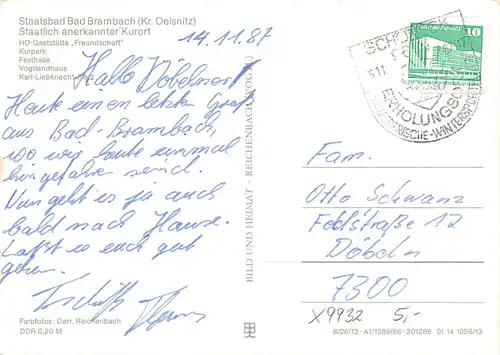 Staatsbad Bad Brambach (Kr. Oelsnitz)
Staatlich anerkannter Kurort
HO-Gaststätte „Freundschaft"
Kurpark
Festhalle
Vogtlandhaus
Karl-Liebknecht-Platz
14.11.87
Hallo Döbelner!
Heute einen letzten Gruß
aus Bad-Brambach,
wo wir heute einmal
hingefahren sind.
Nun geht es ja auch
bald nach Hause.
Laßt es euch gut
gehen.
Tschüß
Farbfotos: Darr, Reichenbach
DDR 0,20 M
BILD UND HEIMAT · REICHENBACH (VOGTL)
10
SCHÖNECK
ERHOLUNGSORT
Fam.
Otto Schwanz
Feldstraße 12
Döbeln
7300
X9932 5,-
III/26/13 · A1/1289/86 · 301289 01 14 1056/13